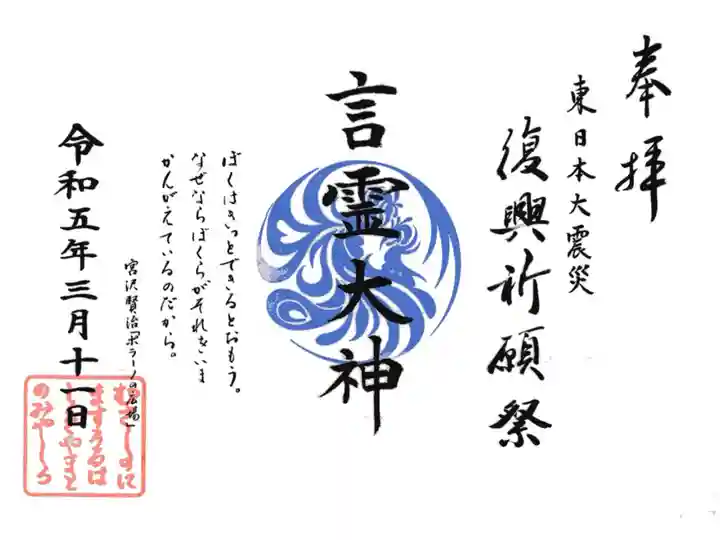 奉拝
東日本大震災
復興祈願祭
言霊大神
ぼくはきっとできるとおもう。
なぜならぼくらがそれをいま
かんがえているのだから。
宮沢賢治「ポラーノの広場」
令和五年三月十一日
むさしのに
ますうるは
しきやまと
のみやしろ